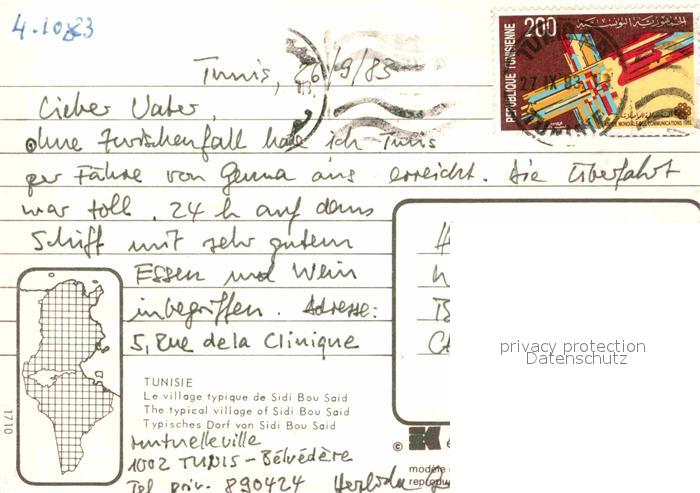 4.10.83
200
الجمهورية التونسية
REPUBLIQUE TUNISIENNE
TUNIS
27 IX 83
Tunis, 26/9/83
Lieber Vater,
ohne Zwischenfall habe ich Tunis
per Fähre von Genua aus erreicht. Die Überfahrt
war toll. 24 h auf dem
Schiff mit sehr gutem
Essen und Wein
inbegriffen. Adresse:
5, Rue de la Clinique
privacy protection
Datenschutz
TUNISIE
Le village typique de Sidi Bou Said
The typical village of Sidi Bou Said
Typisches Dorf von Sidi Bou Said
1710
Mutuelleville
1002 TUNIS - Belvédère
Tel. priv. 890424 Herzliche
©
modèle
reprodu